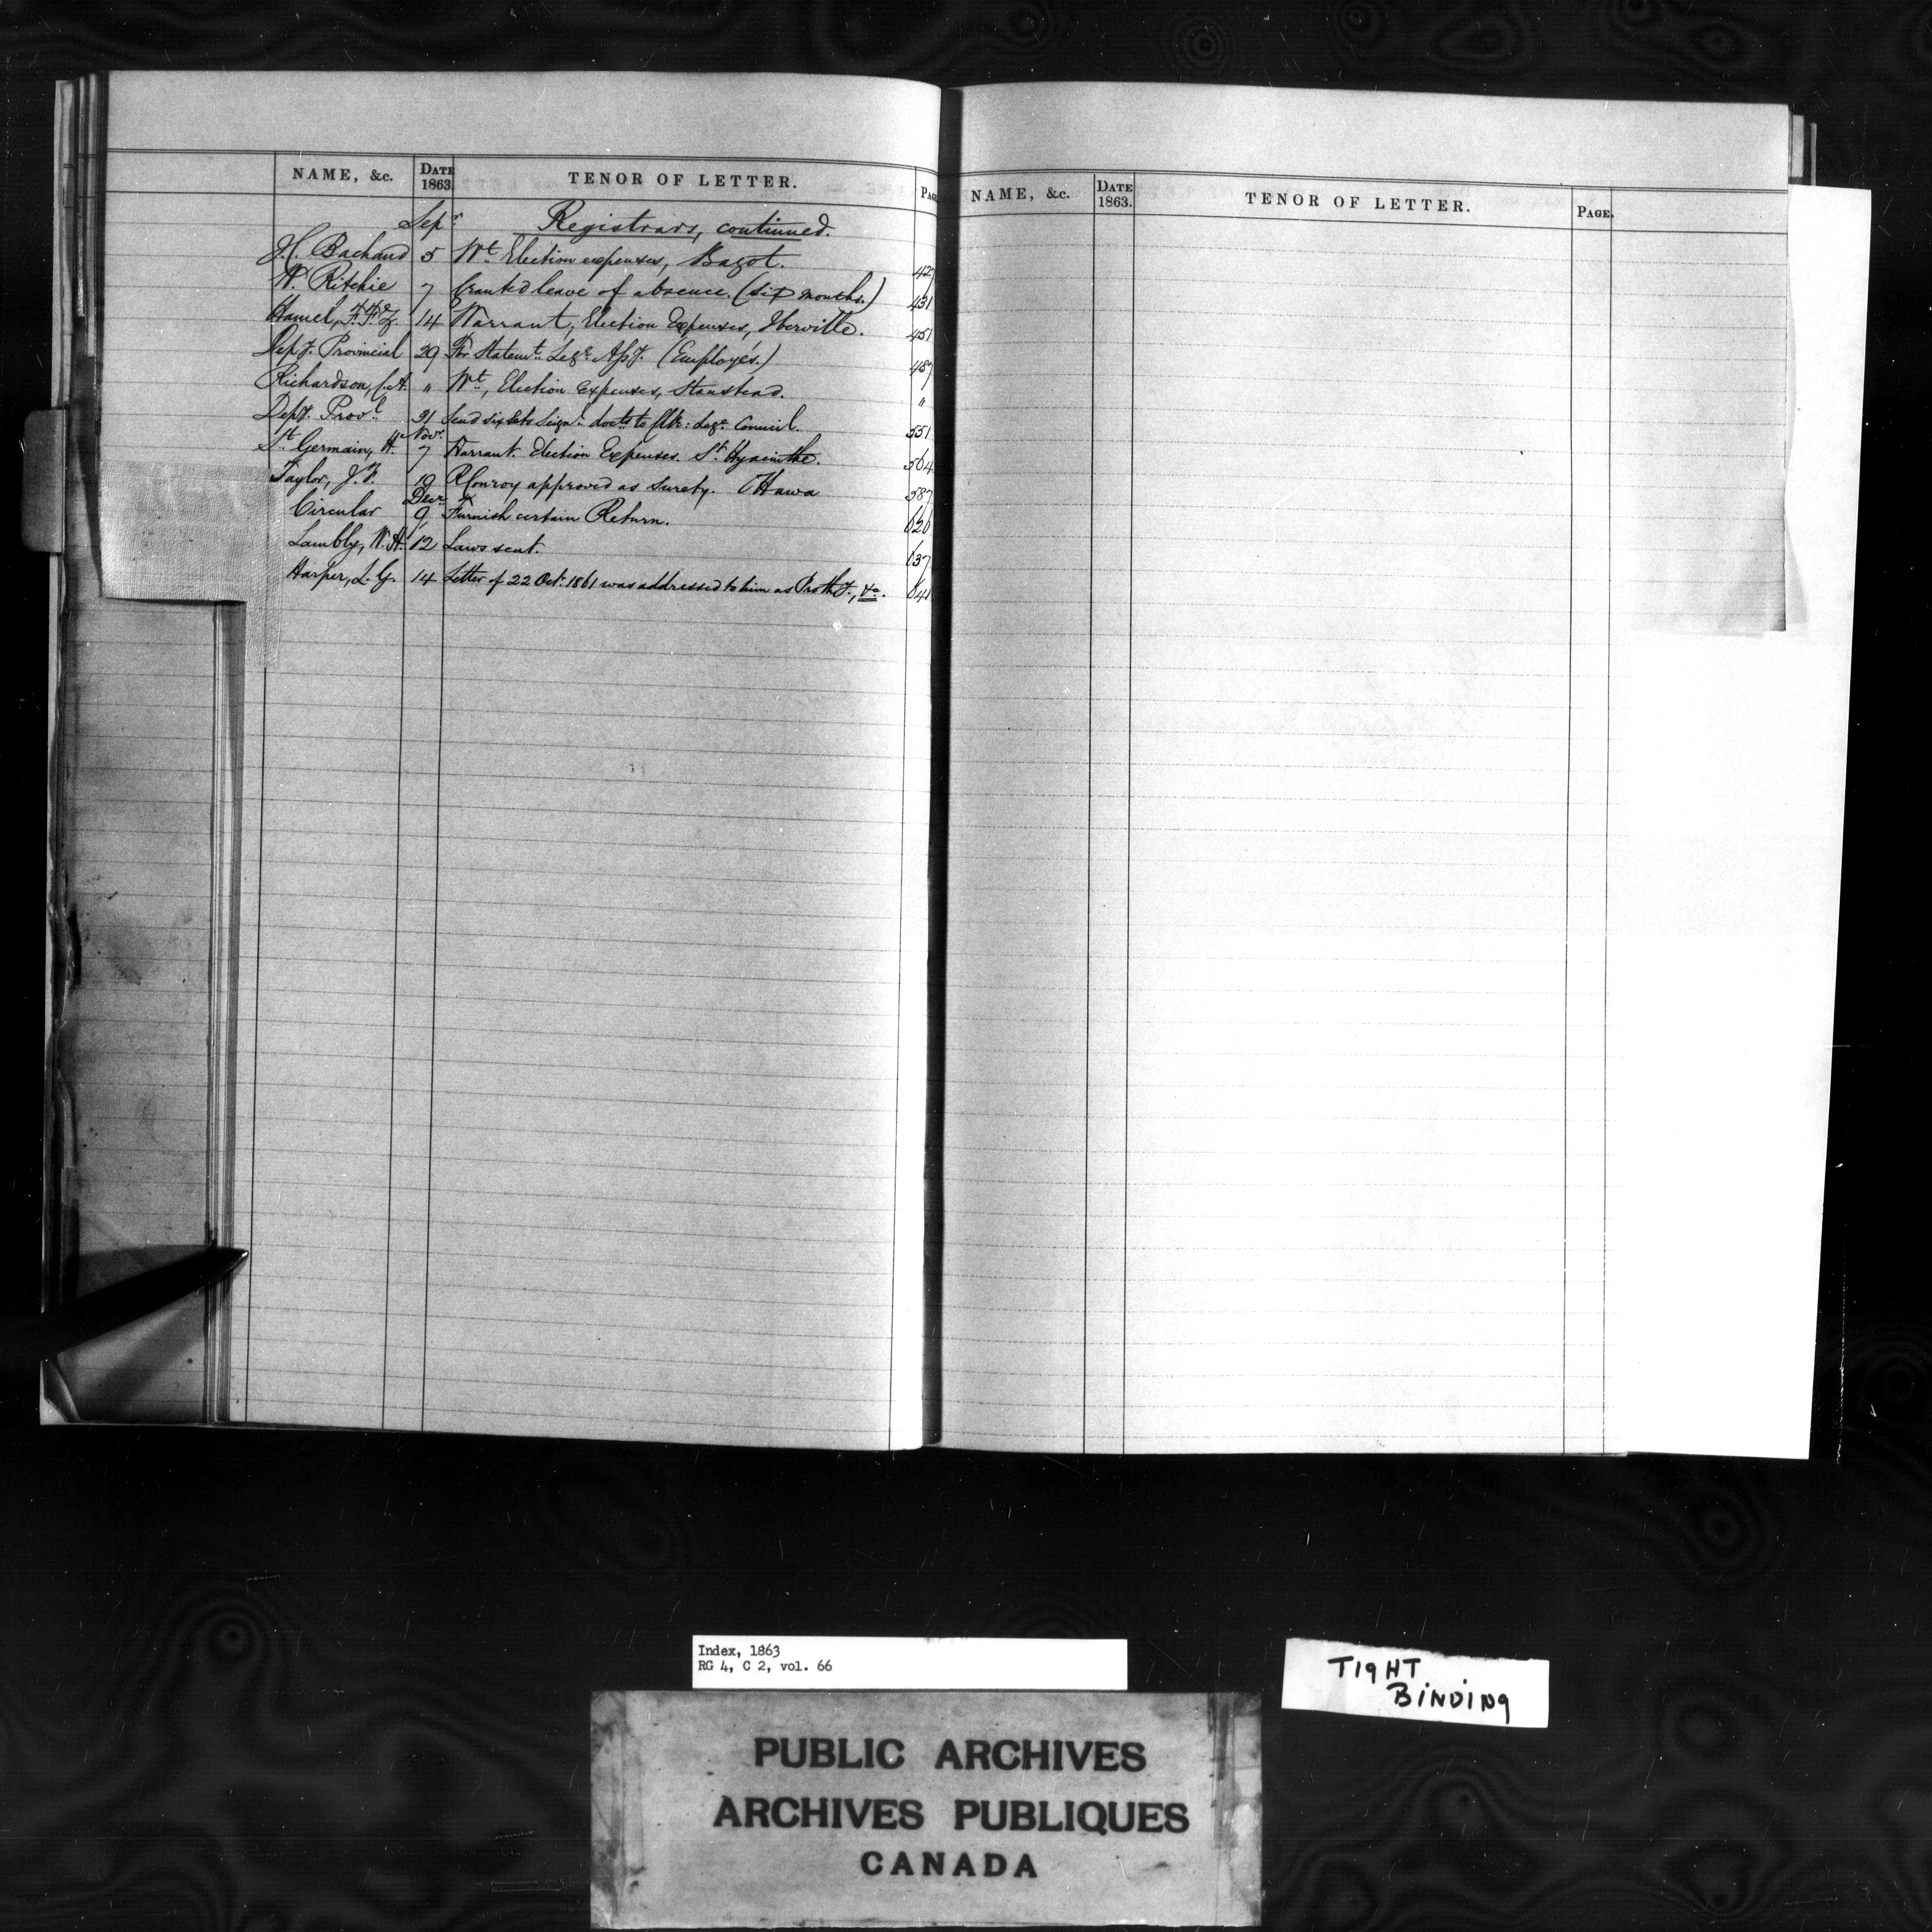 NAME, &c. DATE 1863. TENOR OF LETTER. PAGE
Sepr Registrars, continued.
J.C. Bachand 5 Wt Election expenses, Bagot. 427
W. Ritchie 7 Granted leave of absence. (six months.) 431
Hamel, 14 Warrant, Election Expenses, Iberville. 451
Depy. Provincial 29 For Statemt. Lege. Assy. (Employés.) 487
Richardson, C.A. " Wt, Election Expenses, Stanstead. "
Depy. Provl 31 Send six sets Seignl. docts to Clk: Lege. Council. 551
Novr
St. Germain, H. 7 Warrant. Election Expenses. St. Hyacinthe. 564
Taylor, J.F. 19 R Conroy approved as surety. Ottawa 587
Decr
Circular 9 Furnish certain Return. 626
Lambly, W.H. 12 Laws sent. 637
Harper, L.G. 14 Letter of 22 Oct. 1861 was addressed to him as Prothy., &c. 641
NAME, &c. DATE 1863. TENOR OF LETTER. PAGE.
Index, 1863
RG 4, C 2, vol. 66
TIGHT
BINDING
PUBLIC ARCHIVES
ARCHIVES PUBLIQUES
CANADA